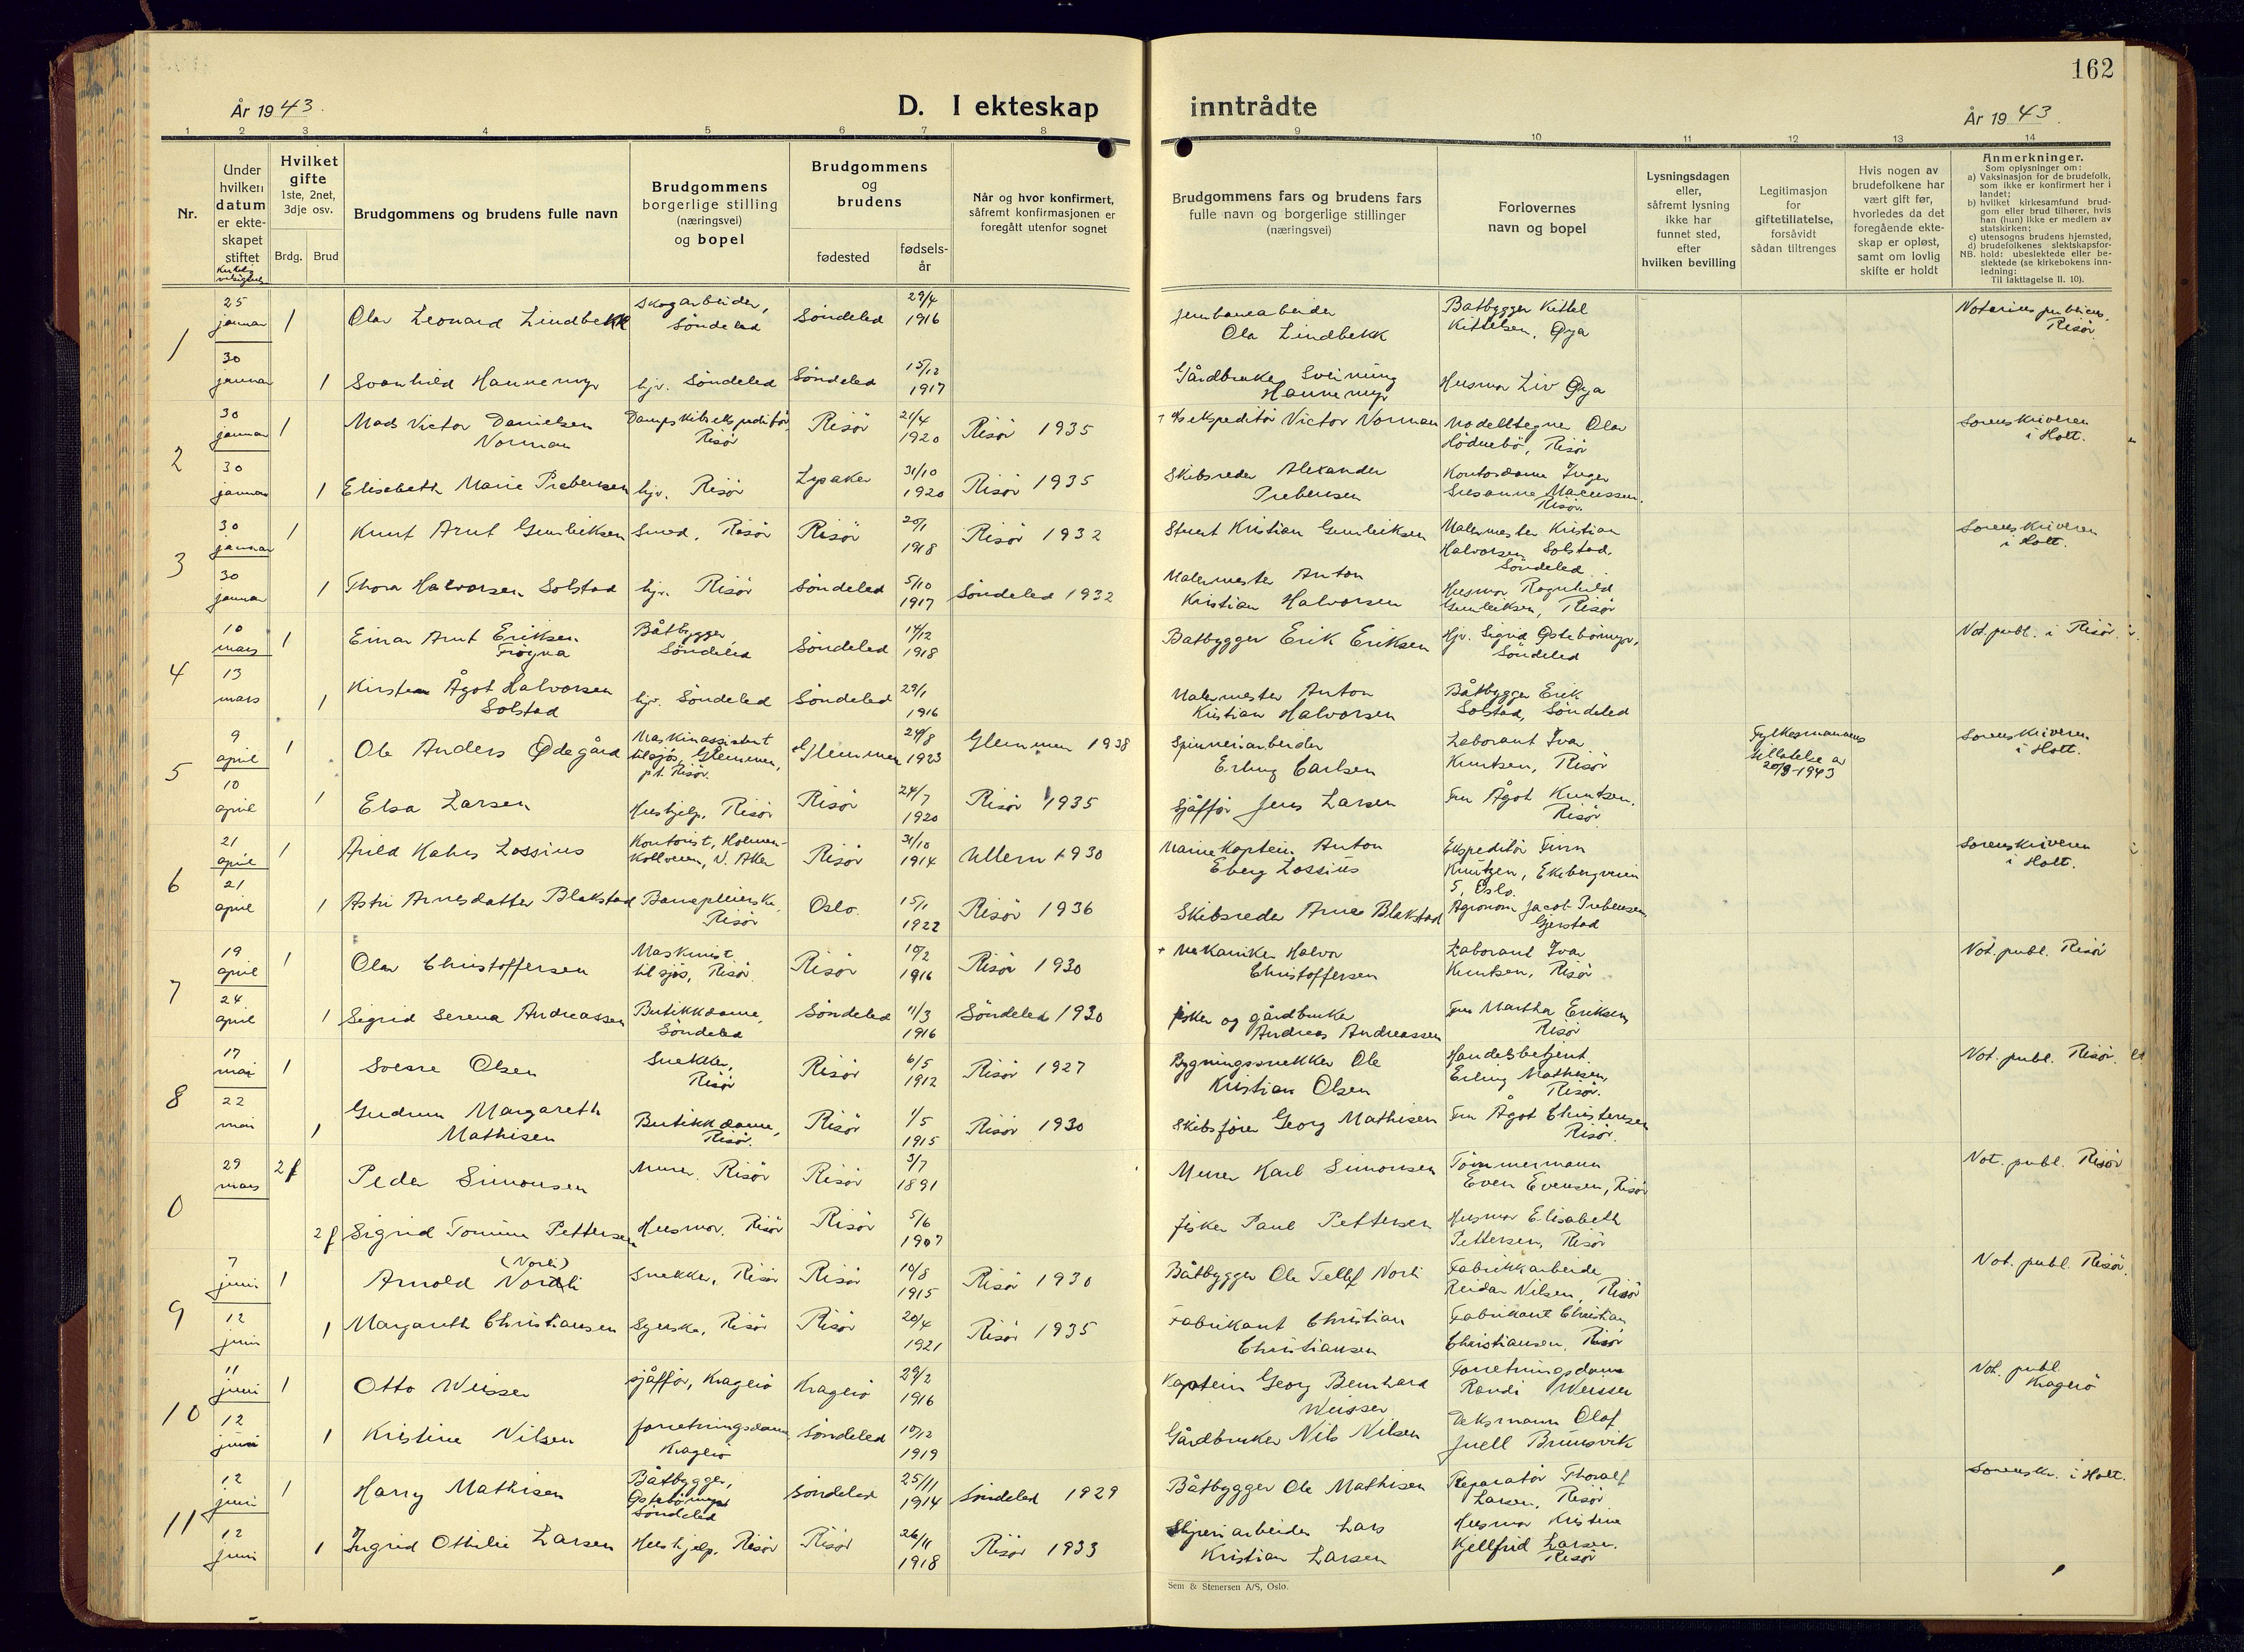 162
År 1943.
D. I ekteskap inntrådte
År 1943.
1 2 3 4 5 6 7 8 9 10 11 12 13 14
Nr.
Under
hvilken
datum
er ekte-
skapet
stiftet
Hvilket
gifte
1ste, 2net,
3dje osv.
Brdg. Brud
Brudgommens og brudens fulle navn
Brudgommens
borgerlige stilling
(næringsvei)
og bopel
Brudgommens
og
brudens
fødested
fødsels-
år
Når og hvor konfirmert,
såfremt konfirmasjonen er
foregått utenfor sognet
Brudgommens fars og brudens fars
fulle navn og borgerlige stillinger
(næringsvei)
Forlovernes
navn og bopel
Lysningsdagen
eller,
såfremt lysning
ikke har
funnet sted,
efter
hvilken bevilling
Legitimasjon
for
giftetillatelse,
forsåvidt
sådan tiltrenges
Hvis nogen av
brudefolkene har
vært gift før,
hvorledes da det
foregående ekte-
skap er opløst,
samt om lovlig
skifte er holdt
Anmerkninger.
Som oplysninger om:
a) Vaksinasjon for de brudefolk,
som ikke er konfirmert her i
landet;
b) hvilket kirkesamfund brud-
gom eller brud tilhører, hvis
han (hun) ikke er medlem av
statskirken;
c) utensogns brudens hjemsted,
d) brudefolkenes slektskapsfor-
NB. hold: ubeslektede eller be-
slektede (se kirkebokens inn-
ledning:
Til iakttagelse II. 10).
1
25 januar 1 Olav Leonard Lindbekk Skogarbeider, Söndeled Söndeled 29/4 1916 Jernbanearbeider Ola Lindbekk Båtbygger Kittel Kittelsen, Øya Notarius publicus, Risör
30 januar 1 Svanhild Hannemyr hjv. Söndeled Söndeled 15/12 1917 Gårdbruker Sveinung Hannemyr Husmor Liv Øya
2
30 januar 1 Mads Victor Danielsen Norman Dampskibsekspeditör, Risör Risör 21/4 1920 Risör 1935 † d/s ekspeditör Victor Norman Modelltegner Olav Hödnebö, Risör Sorenskriveren i Holt.
30 januar 1 Elisabeth Marie Prebensen hjv. Risör Lysaker 31/10 1920 Risör 1935 Skibsreder Alexander Prebensen Kontordame Inger Susanne Marcussen, Risör.
3
30 januar 1 Knut Arnt Gunleiksen Smed, Risör Risör 20/1 1918 Risör 1932 Stuert Kristian Gunleiksen Malermester Kristian Halvorsen Solstad, Söndeled Sorenskriveren i Holt.
30 januar 1 Thora Halvorsen Solstad hjv. Risör Söndeled 5/10 1917 Söndeled 1932 Malermester Anton Kristian Halvorsen Husmor Ragnhild Gunleiksen, Risör
4
10 mars 1 Einar Arnt Eriksen Tröyna Båtbygger, Söndeled Söndeled 14/12 1918 Båtbygger Erik Eriksen Hjv. Sigrid Østebömyr, Söndeled Not. publ. i Risör.
13 mars 1 Kirsten Ågot Halvorsen Solstad hjv. Söndeled Söndeled 29/1 1916 Malermester Anton Kristian Halvorsen Båtbygger Erik Solstad, Söndeled
5
9 april 1 Ole Anders Ødegård Maskinassistent tilsjös, Glemmen, p.t. Risör. Glemmen 24/8 1923 Glemmen 1938 Spinneriarbeider Erling Carlsen Laborant Ivar Knutsen, Risör Fylkesmannens tillatelse av 20/3-1943 Sorenskriveren i Holt.
10 april 1 Elsa Larsen Hushjelp, Risör Risör 24/7 1920 Risör 1935 Sjåfför Jens Larsen Fru Ågot Knutsen, Risör
6
21 april 1 Arild Hahrs Lossius Kontorist, Holmenkollveien, V. Aker Risör 31/10 1914 Ullern 1930 Marinekaptein Anton Eberg Lossius Ekspeditör Finn Knutzen, Ekebergveien 5, Oslo. Sorenskriveren i Holt.
21 april 1 Astri Arnesdatter Blakstad Barnepleierske, Risör Oslo. 15/1 1922 Risör 1936 Skibsreder Arne Blakstad Agronom Jacob Prebensen, Gjerstad
7
19 april 1 Olav Christoffersen Maskinist tilsjös, Risör Risör 10/2 1916 Risör 1930 † Mekaniker Halvor Christoffersen Laborant Ivar Knutsen, Risör Not. publ. Risör
24 april 1 Sigrid Serena Andreassen Butikkdame, Söndeled Söndeled 11/3 1916 Söndeled 1930 fisker og gårdbruker Andreas Andreassen Fru Martha Eriksen, Risör
8
17 mai 1 Sverre Olsen Snekker, Risör Risör 6/5 1912 Risör 1927 Bygningssnekker Ole Kristian Olsen Handelsbetjent Erling Mathisen, Risör. Not. publ. Risör.
22 mai 1 Gudrun Margareth Mathisen Butikkdame, Risör. Risör 1/5 1915 Risör 1930 Skibsförer Georg Mathisen Fru Ågot Christensen Risör.
0
29 mars 2 f Peder Simonsen Murer. Risör Risör 3/7 1891 Murer Karl Simonsen Tömmermann Even Evensen, Risör Not. publ. Risör
2 f Sigrid Tomine Pettersen Husmor. Risör Risör 5/6 1907 fisker Paul Pettersen Husmor Elisabeth Pettersen, Risör
9
7 juni 1 Arnold Nordli (Norli) Snekker, Risör Risör 10/8 1915 Risör 1930 Båtbygger Ole Tellef Norli Fabrikkarbeider Reidar Nilsen, Risör Not. publ. Risör.
12 juni 1 Margareth Christiansen Syerske, Risör Risör 20/4 1921 Risör 1935 Fabrikant Christian Christiansen Fabrikant Christian Christiansen, Risör
10
11 juni 1 Otto Weisser sjåffør, Kragerö Kragerö 29/2 1916 Kaptein Georg Bernhard Weisser Forretningsdame Randi Weisser Not. publ. Kragerö
12 juni 1 Kristine Nilsen forretningsdame, Kragerö Söndeled 10/12 1919 Gårdbruker Nils Nilsen Deksmann Olaf Juell Brunsvik
11
12 juni 1 Harry Mathisen Båtbygger, Østebömyr Söndeled Söndeled 25/11 1914 Söndeled 1929 Båtbygger Ole Mathisen Reparatör Thoralf Larsen, Risör Sorenskr. i Holt.
12 juni 1 Ingrid Othilie Larsen Hushjelp, Risör Risör 26/11 1918 Risör 1933 Sliperiarbeider Lars Kristian Larsen Husmor Kristine Kjellfrid Larsen, Risör
Sem & Stenersen A/S, Oslo.